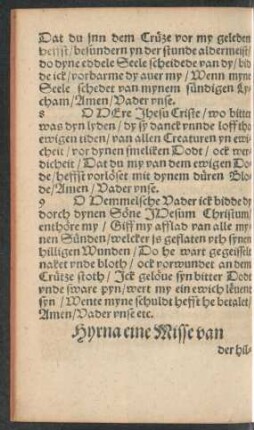 Dat du jnn dem Crütze vor my geleden
heffst / besundern yn der stunde aldermeist /
do dyne eddele Seele scheidede van dy / bid
de ick / vorbarme dy auer my / Wenn myne
Seele schedet van mynem sündigen Ly
cham / Amen / Vader vnse.
8 O HEre Jhesu Criste / wo bitter
was dyn lyden / dy sy danck vnnde loff tho
ewigen tiden / van allen Creaturen yn ewi
cheit / vor dynen smeliken Dodt / ock wer
dicheit / Dat du my van dem ewigen Do
de / heffst vorlöset mit dynem düren Blo
de / Amen / Vader vnse.
9 O Hemmelsche Vader ick bidde dy
dorch dynen Söne JHesum Christum /
enthöre my / Giff my afflad van alle my
nen Sünden / welcker ys geflaten vth synen
hilligen Wunden / Do he wart gegeisselt
naket vnde bloth / ock vorwundet an dem
Crütze stoth / Ick gelöne syn bitter Dodt
vnde sware pyn / wert my ein ewich leuent
syn / Wente myne schuldt hefft he betalet /
Amen / Vader vnse etc.
Hyrna eine Misse van
der hil-